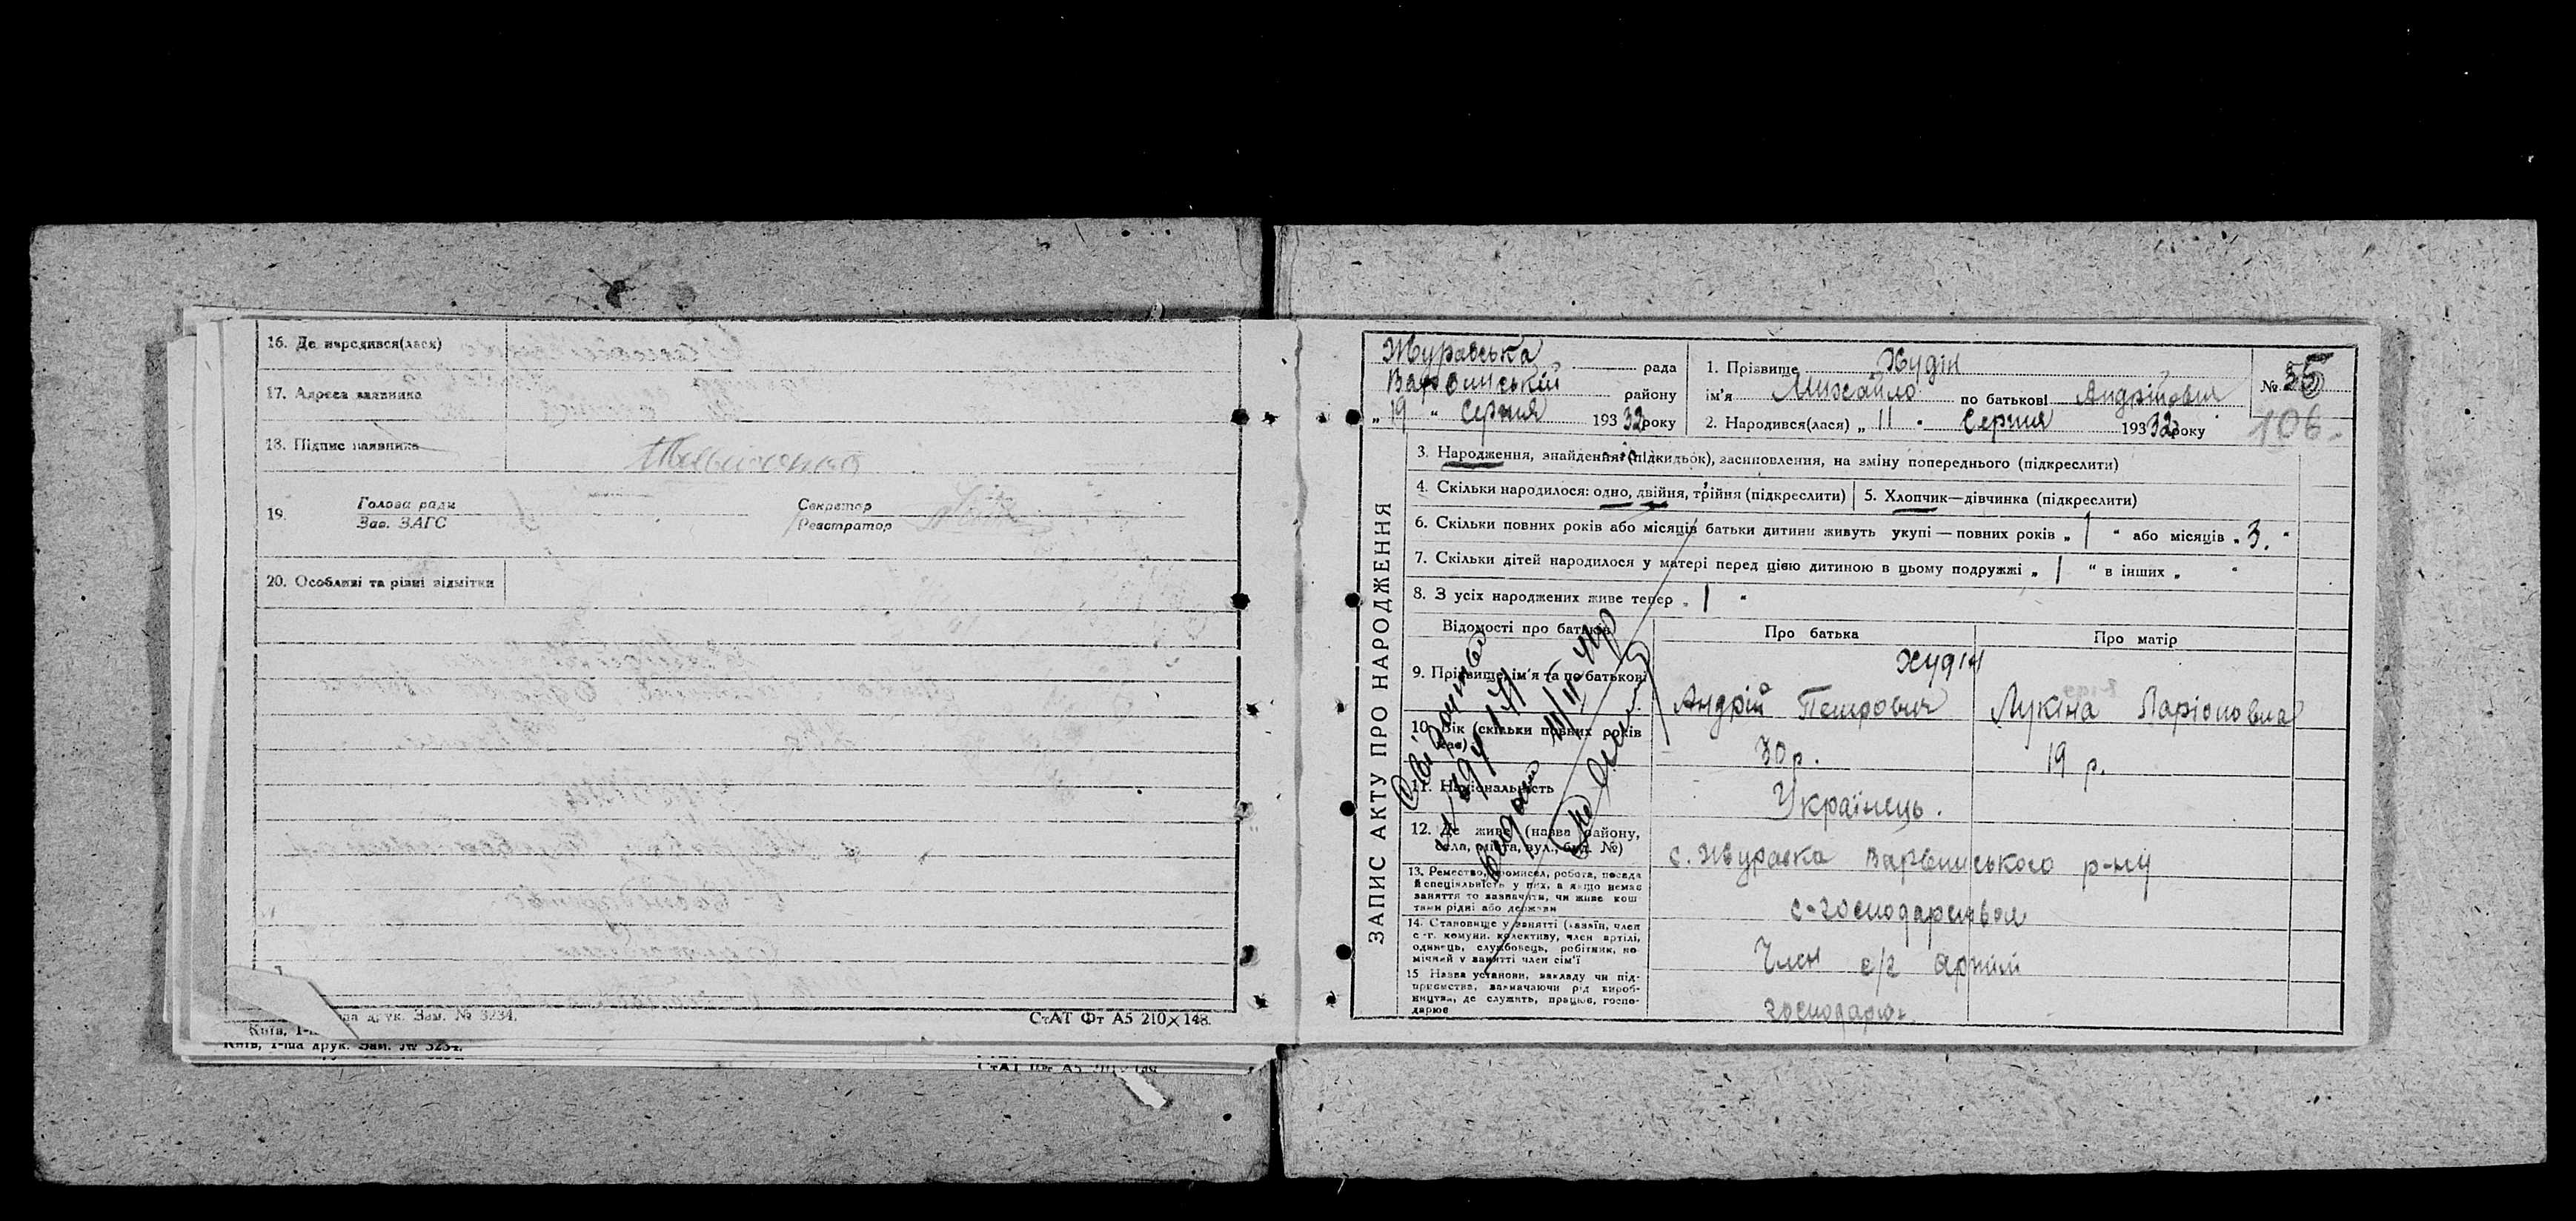 16. Де народився(лася)
17. Адреса заявника
18. Підпис заявника
19. Голова ради
Зав. ЗАГС
Секретар
Реєстратор
20. Особливі та різні відмітки
друк. Зам. № 3234.
СтАТ Фт А5 210×148.
Київ, 1-ша друк. Зам. № 3234.
ЗАПИС АКТУ ПРО НАРОДЖЕННЯ
Журавська рада
Варвинський району
„ 19 “ Серпня 193 32 року
1. Прізвище Худін
ім'я Михайло по батькові Андрійович
2. Народився(лася) „ 11 “ Серпня 193 32 року
№ 55
106
3. Народження, знайдення (підкидьок), засиновлення, на зміну попереднього (підкреслити)
4. Скільки народилося: одно, двійня, трійня (підкреслити)
5. Хлопчик—дівчинка (підкреслити)
6. Скільки повних років або місяців батьки дитини живуть укупі — повних років „ 1 “ або місяців „ 3. “
7. Скільки дітей народилося у матері перед цією дитиною в цьому подружжі „ 1 “ в інших „ “
8. З усіх народжених живе тепер „ 1 “
Відомості про батьків
Про батька
Про матір
9. Прізвище, ім'я та по батькові
Худін
Андрій Петрович
Лукіна Ларіоновна
10. Вік (скільки повних років має)
30 р.
19 р.
11. Національність
Українець.
12. Де живе (назва району,
села, міста, вул., буд. №)
с. Журавка Варвинського р-ну
13. Ремество, промисел, робота, посада
й спеціяльність у них, а якщо немає
заняття то зазначити, чи живе кош
тами рідні або держави
с-господарством
14. Становище у занятті (хазяїн, член
с-г. комуни, колективу, член артілі,
одинець, службовець, робітник, по
мічний у занятті член сім'ї
Член с/г артілі
15 Назва установи, закладу чи під-
приємства, зазначаючи рід вироб-
ництва, де служить, працює, госпо-
дарює
Свідоцтво
видані